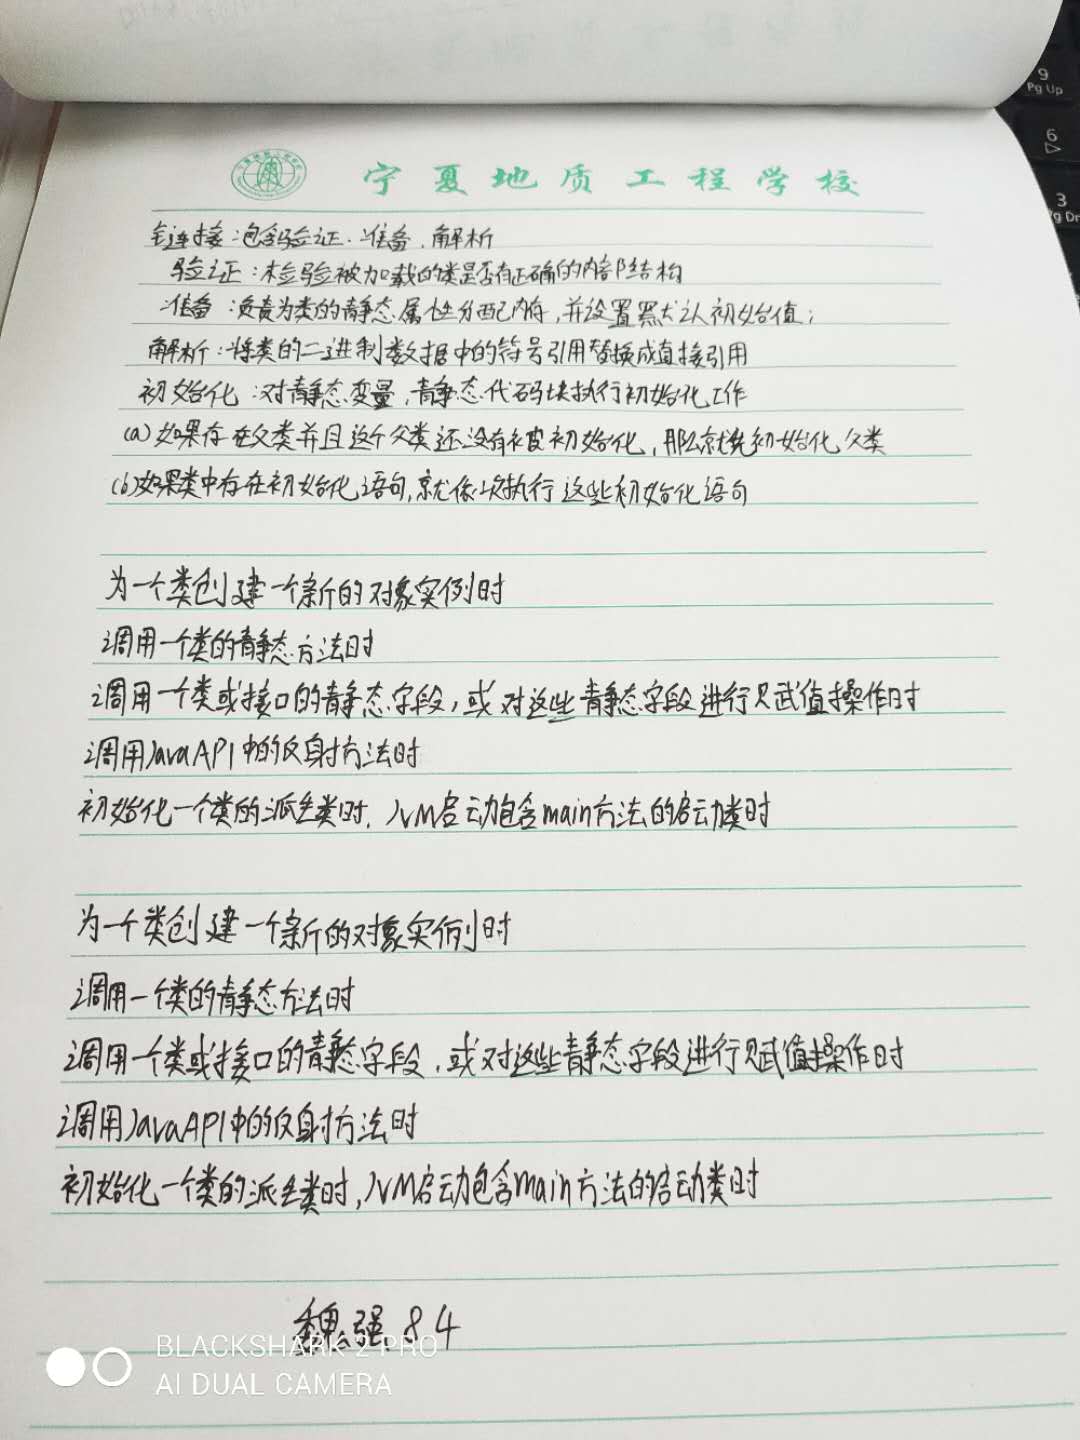 宁夏地质工程学校
链接:包含验证、准备、解析
验证:检验被加载的类是否有正确的内部结构
准备:负责为类的静态属性分配内存,并设置默认初始值;
解析:将类的二进制数据中的符号引用替换成直接引用
初始化:对静态变量,静态代码块执行初始化工作
(a)如果存在父类并且这个父类还没有被初始化,那么就先初始化父类
(b)如果类中存在初始化语句,就依次执行这些初始化语句
为一个类创建一个新的对象实例时
调用一个类的静态方法时
调用一个类或接口的静态字段,或对这些静态字段进行赋值操作时
调用JavaAPI中的反射方法时
初始化一个类的派生类时,JVM启动包含main方法的启动类时
为一个类创建一个新的对象实例时
调用一个类的静态方法时
调用一个类或接口的静态字段,或对这些静态字段进行赋值操作时
调用JavaAPI中的反射方法时
初始化一个类的派生类时,JVM启动包含main方法的启动类时
魏强84
BLACKSHARK 2 PRO
AI DUAL CAMERA
9
Pg Up
6
3
Pg Dn